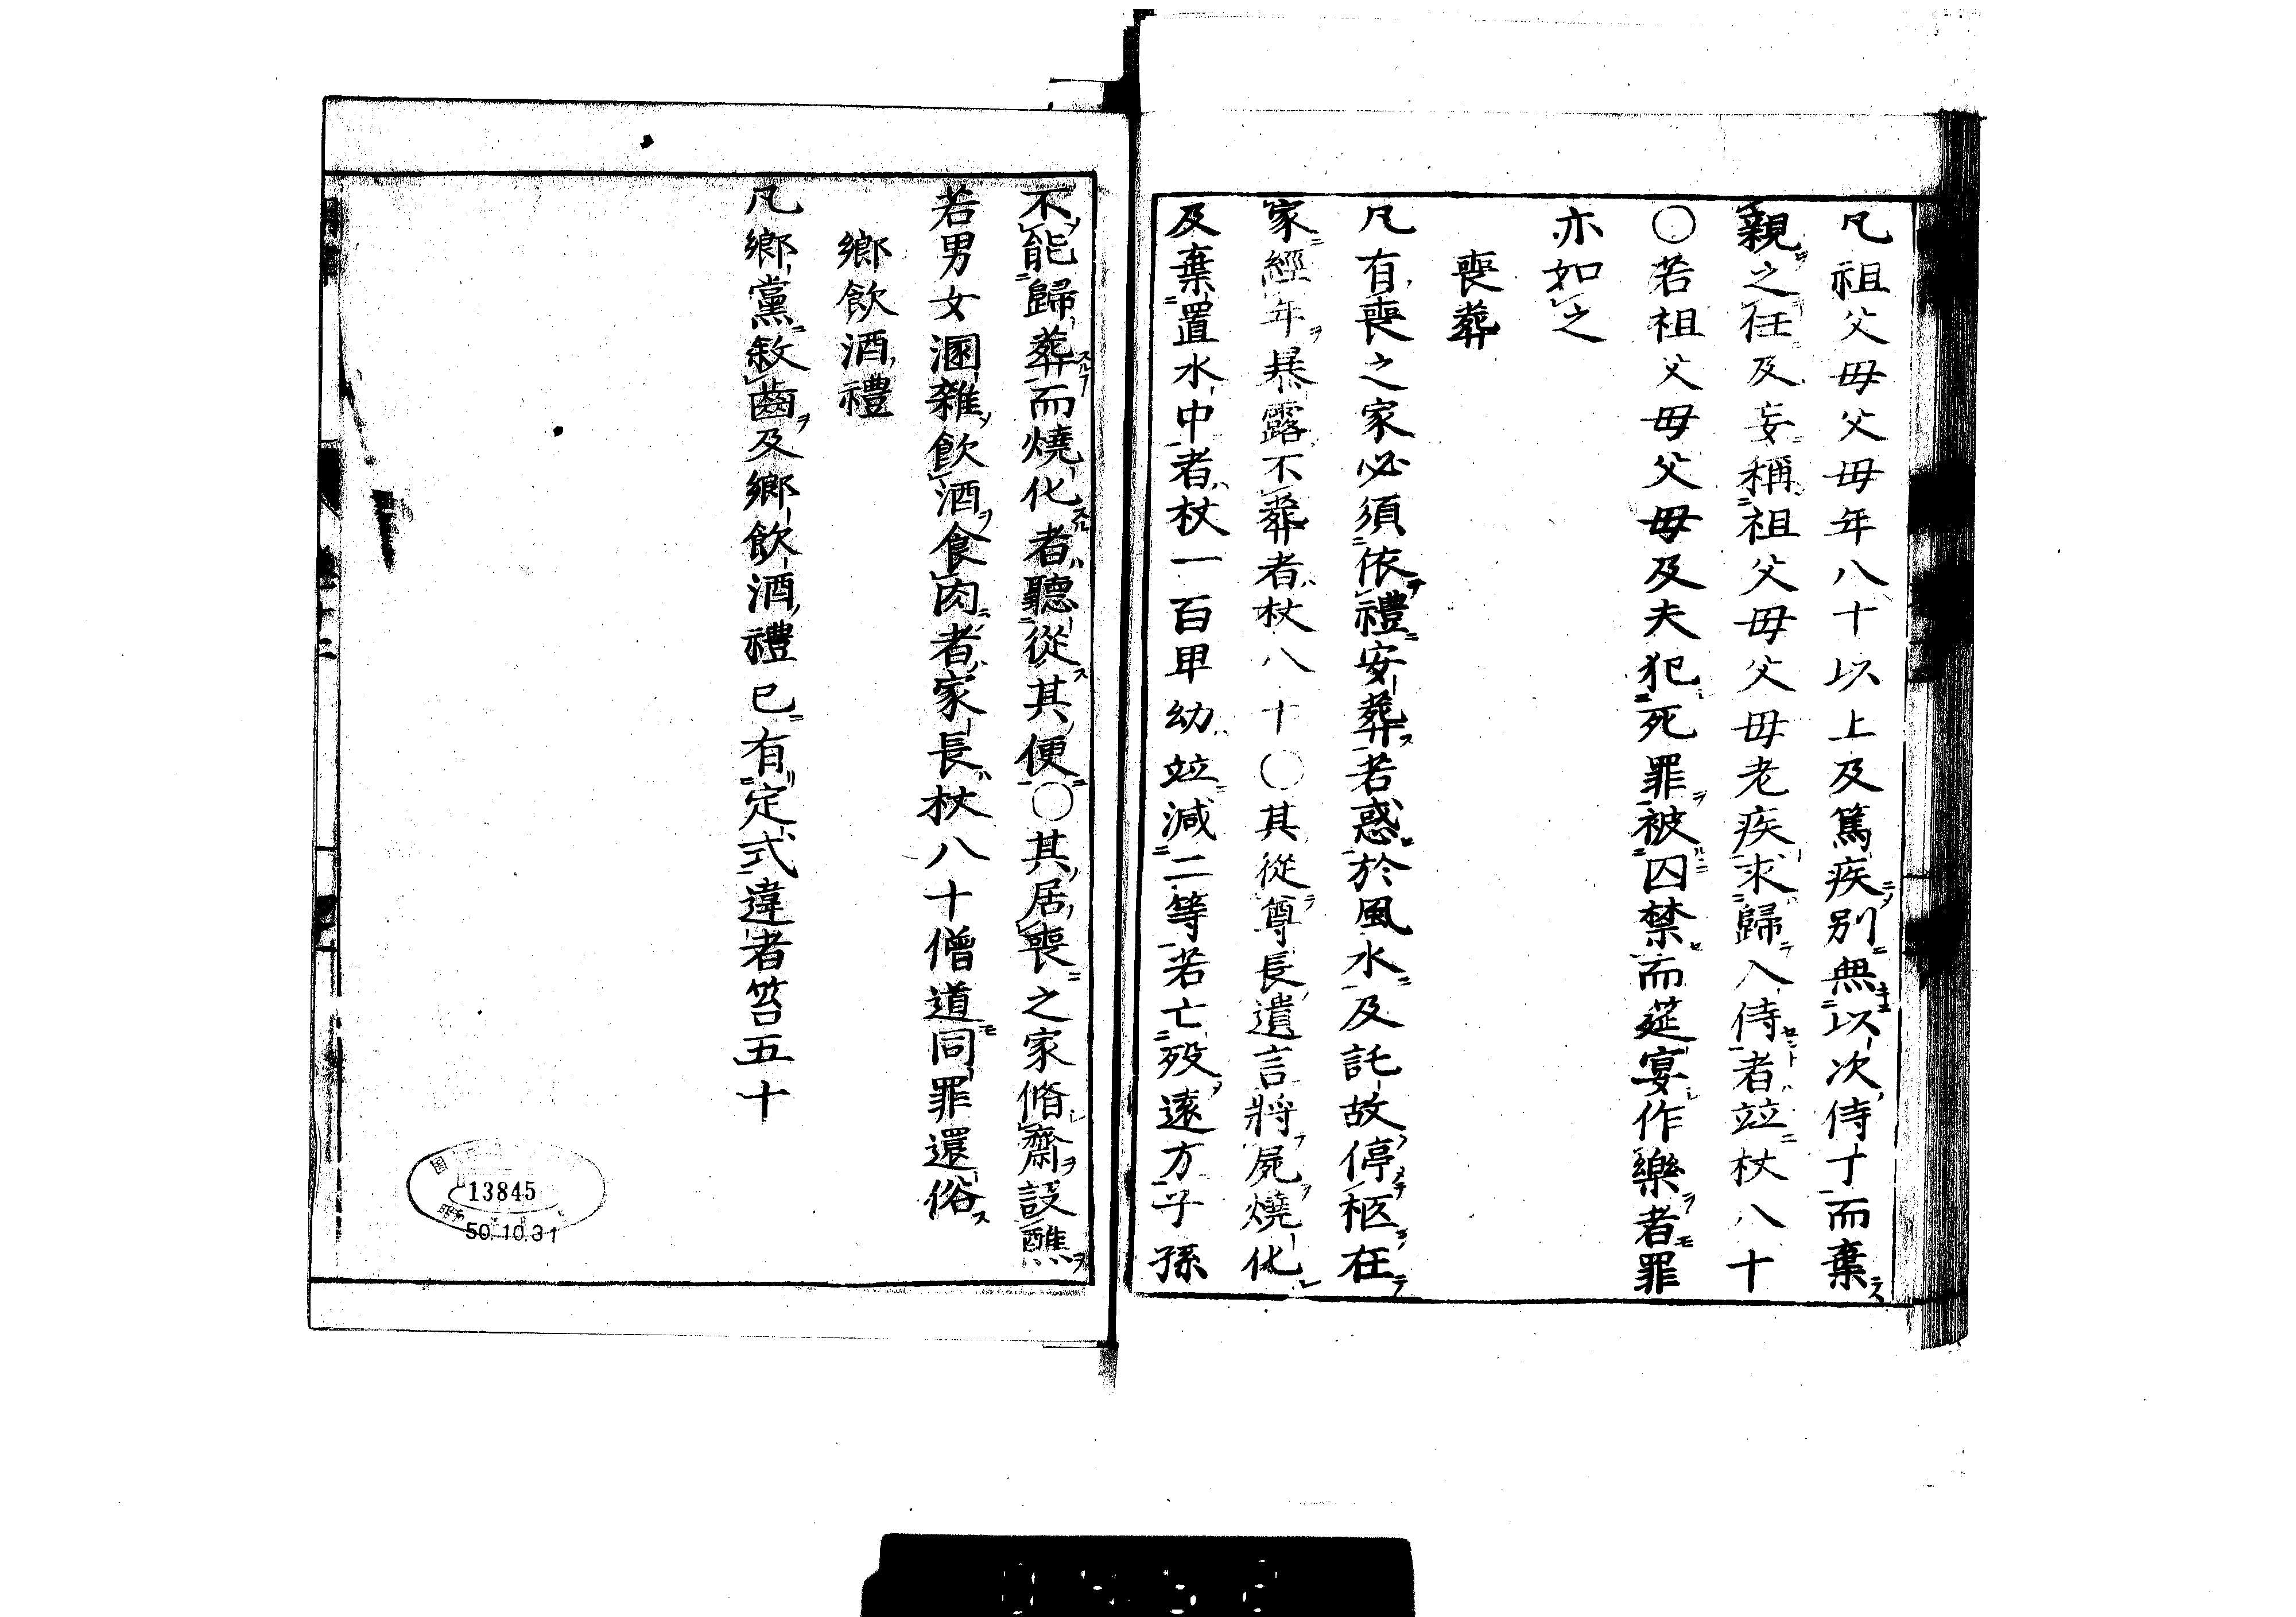 凡祖父母父母年八十以上及篤疾別無以次侍丁而棄
親之任及妄稱祖父母父母老疾求歸入侍者竝杖八十
〇若祖父母父母及夫犯死罪被囚禁而筵宴作樂者罪
亦如之
喪葬
凡有喪之家必須依禮安葬若惑於風水及託故停柩在
家經年暴露不葬者杖八十〇其從尊長遺言將屍燒化
及棄置水中者杖一百卑幼竝減二等若亡殁遠方子孫
不能歸葬而燒化者聽從其便〇其居喪之家脩齋設醮
若男女溷雜飲酒食肉者家長杖八十僧道同罪還俗
鄉飲酒禮
凡鄉黨敘齒及鄉飲酒禮已有定式違者笞五十
13845
50.10.31